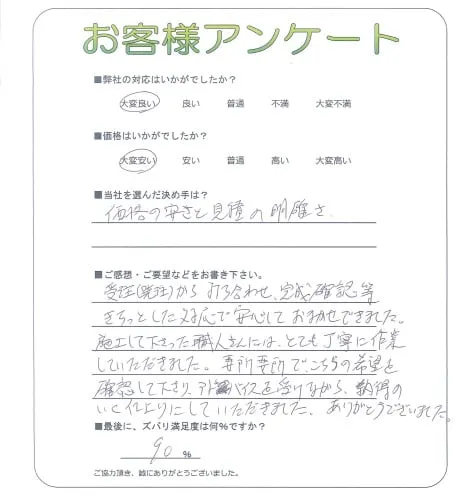 お客様アンケート
■弊社の対応はいかがでしたか？
大変良い 良い 普通 不満 大変不満
■価格はいかがでしたか？
大変安い 安い 普通 高い 大変高い
■当社を選んだ決め手は？
価格の安さと見積の明確さ
■ご感想・ご要望などをお書き下さい。
受注(発注)から打ち合わせ、完成確認等
きちっとした対応で安心しておまかせできました。
施工して下さった職人さんには、とても丁寧に作業
していただきました。要所要所でこちらの希望を
確認して下さり、アドバイスを受けながら、納得の
いく仕上りにしていただきました。ありがとうございました。
■最後に、ズバリ満足度は何%ですか？
90 %
ご協力頂き、誠にありがとうございました。